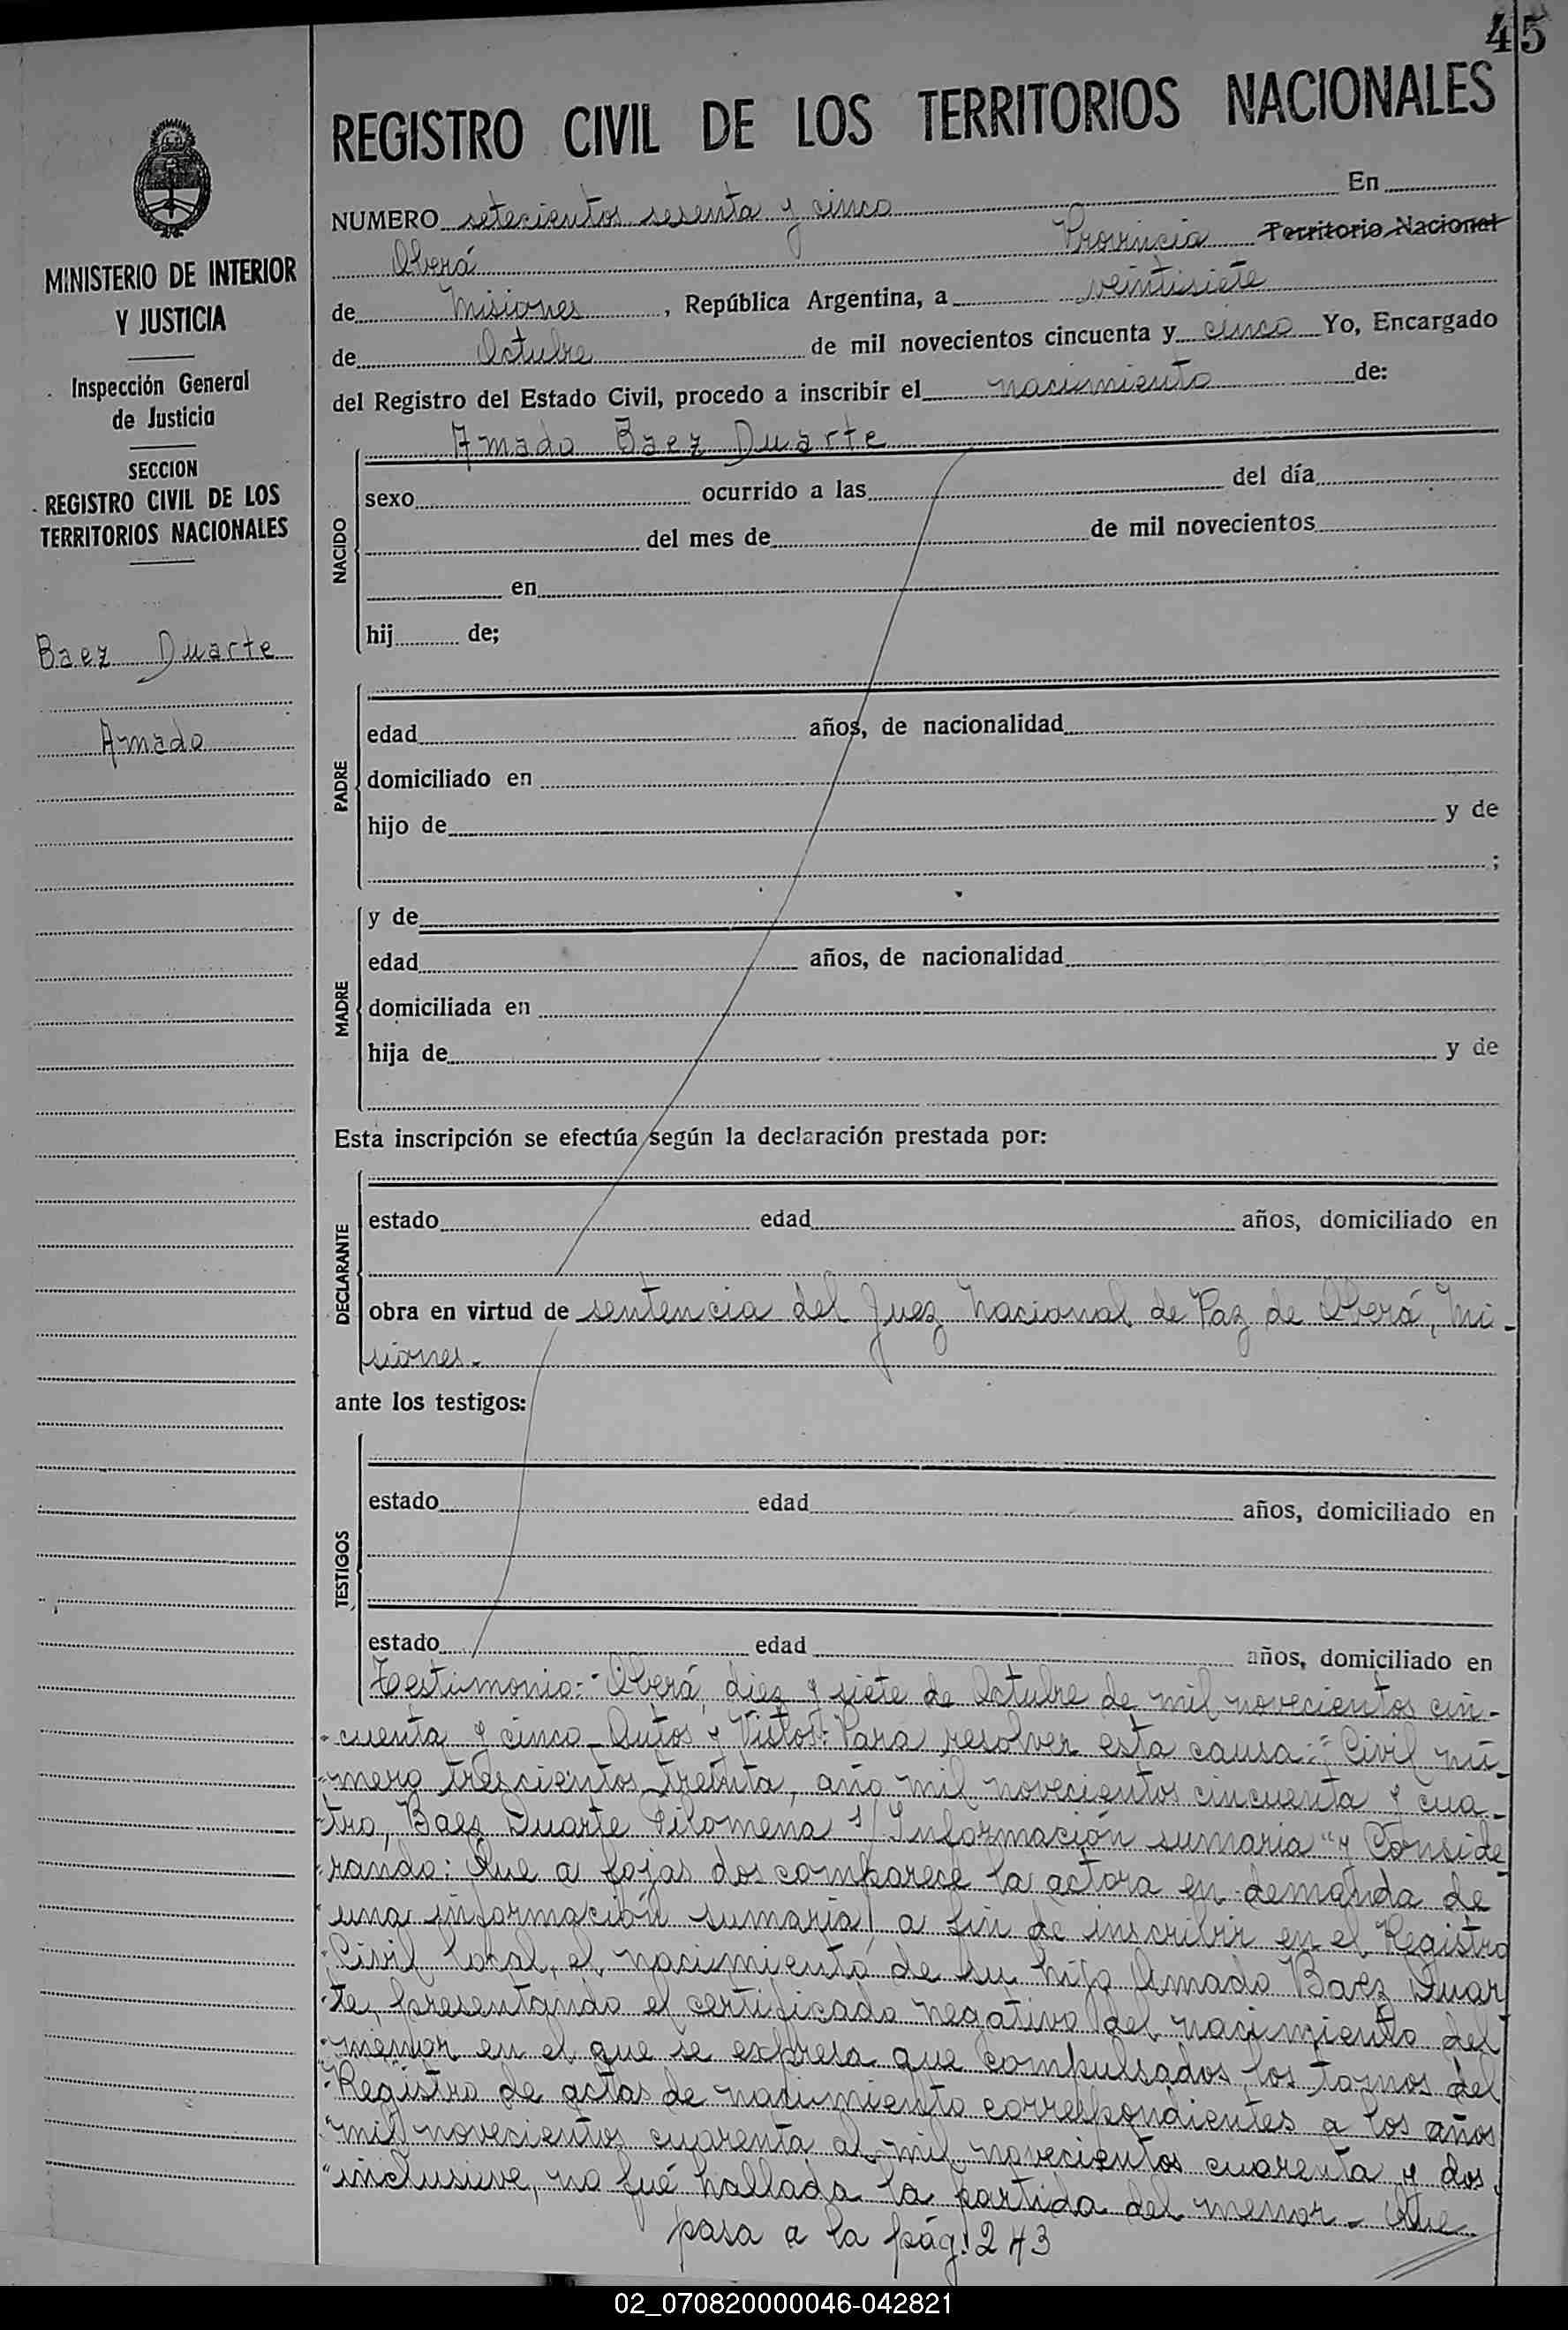 45
REGISTRO CIVIL DE LOS TERRITORIOS NACIONALES
MINISTERIO DE INTERIOR
Y JUSTICIA
Inspección General
de Justicia
SECCION
REGISTRO CIVIL DE LOS
TERRITORIOS NACIONALES
Baez Duarte
Amado
NUMERO setecientos sesenta y cinco En
Oberá Provincia Territorio Nacional
de Misiones, República Argentina, a veintisiete
de Octubre de mil novecientos cincuenta y cinco Yo, Encargado
del Registro del Estado Civil, procedo a inscribir el nacimiento de:
NACIDO
Amado Baez Duarte
sexo ocurrido a las del día
del mes de de mil novecientos
en
hij de;
PADRE
edad años, de nacionalidad
domiciliado en
hijo de y de
;
MADRE
y de
edad años, de nacionalidad
domiciliada en
hija de y de
Esta inscripción se efectúa según la declaración prestada por:
DECLARANTE
estado edad años, domiciliado en
obra en virtud de sentencia del Juez Nacional de Paz de Oberá, Mi-
siones.-
ante los testigos:
TESTIGOS
estado edad años, domiciliado en
estado edad años, domiciliado en
Testimonio:- Oberá, diez y siete de Octubre de mil novecientos cin-
cuenta y cinco- Autos y Vistos: Para resolver esta causa:- Civil nú-
mero trescientos treinta, año mil novecientos cincuenta y cua-
tro, Baez Duarte Filomena s/ Información sumaria" y Conside-
rando: Que a fojas dos comparece la actora en demanda de
una información sumaria, a fin de inscribir en el Registro
Civil local, el nacimiento de su hijo Amado Baez Duar-
te, presentando el certificado negativo del nacimiento del
menor en el que se expresa que compulsados los tomos del
Registro de actas de nacimiento correspondientes a los años
mil novecientos cuarenta al mil novecientos cuarenta y dos
inclusive, no fué hallada la partida del menor.- Que
pasa a la pág. 243
02_070820000046-042821